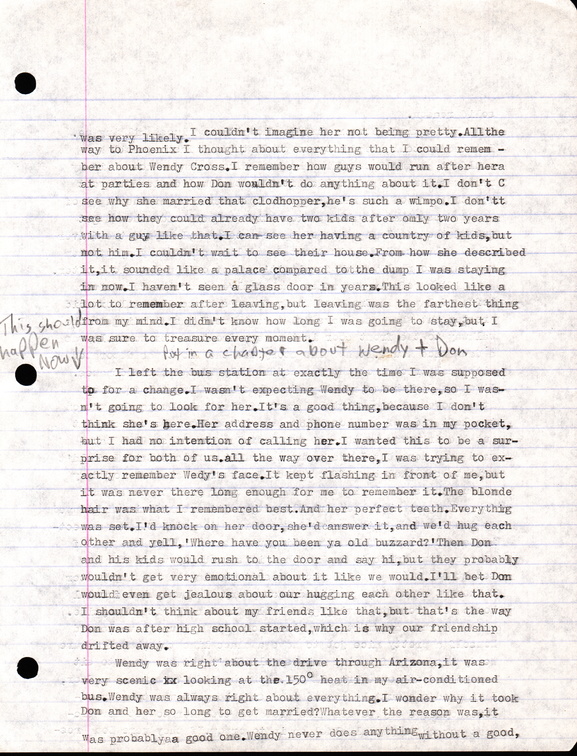 was very likely. I couldn't imagine her not being pretty.Allthe
way to Phoenix I thought about everything that I could remem -
ber about Wendy Cross.I remember how guys would run after hera
at parties and how Don wouldn't do anything about it.I don't C
see why she married that clodhopper,he's such a wimpo.I don'tt
see how they could already have two kids after only two years
with a guy like that.I can see her having a country of kids,but
not him.I couldn't wait to see their house.From how she described
it,it sounded like a palace compared to the dump I was staying
in now.I haven't seen a glass door in years.This looked like a
lot to remember after leaving,but leaving was the farthest thing
from my mind.I didn't know how long I was going to stay,but I
was sure to treasure every moment.
This should
happen
Now
Put in a chapter about Wendy + Don
I left the bus station at exactly the time I was supposed
to for a change.I wasn't expecting Wendy to be there,so I was-
n't going to look for her.It's a good thing,because I don't
think she's here.Her address and phone number was in my pocket,
but I had no intention of calling her.I wanted this to be a sur-
prise for both of us.all the way over there,I was trying to ex-
actly remember Wedy's face.It kept flashing in front of me,but
it was never there long enough for me to remember it.The blonde
hair was what I remembered best.And her perfect teeth.Everything
was set.I'd knock on her door,she'd answer it,and we'd hug each
other and yell,'Where have you been ya old buzzard?'Then Don
and his kids would rush to the door and say hi,but they probably
wouldn't get very emotional about it like we would.I'll bet Don
would even get jealous about our hugging each other like that.
I shouldn't think about my friends like that,but that's the way
Don was after high school started,which is why our friendship
drifted away.
Wendy was right about the drive through Arizona,it was
very scenic xx looking at the 150° heat in my air-conditioned
bus.Wendy was always right about everything.I wonder why it took
Don and her so long to get married?Whatever the reason was,it
was probablyaa good one.Wendy never does anything without a good,